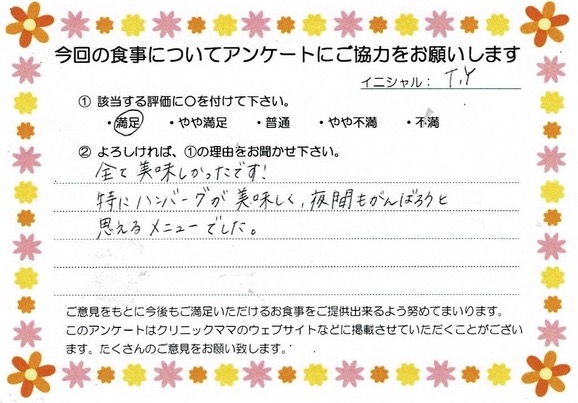 今回の食事についてアンケートにご協力をお願いします
イニシャル： T.Y
① 該当する評価に○を付けて下さい。
・満足 ・やや満足 ・普通 ・やや不満 ・不満
② よろしければ、①の理由をお聞かせ下さい。
全て美味しかったです!
特にハンバーグが美味しく、夜間もがんばろうと
思えるメニューでした。
ご意見をもとに今後もご満足いただけるお食事をご提供出来るよう努めてまいります。
このアンケートはクリニックママのウェブサイトなどに掲載させていただくことがござい
ます。たくさんのご意見をお願い致します。